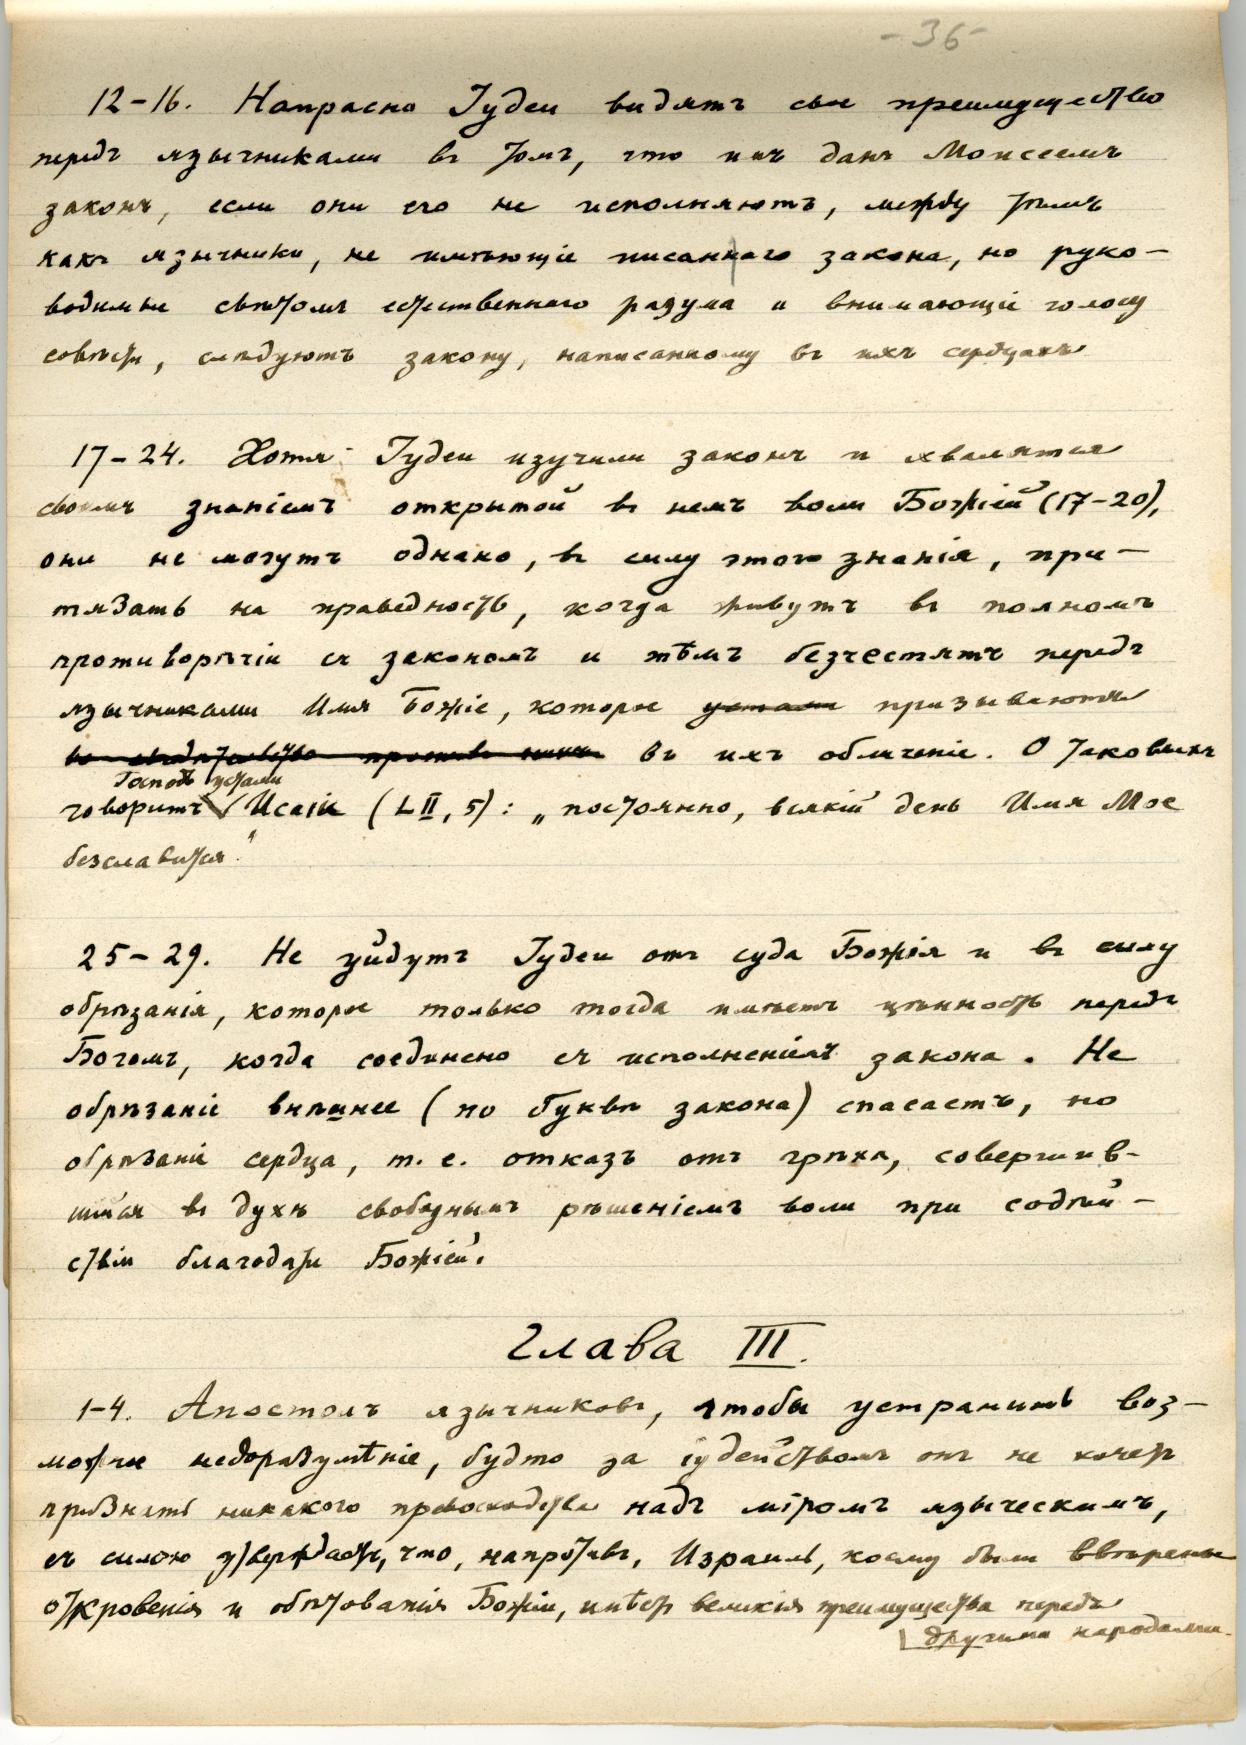 -36-
12-16. Напрасно Іудеи видятъ свое преимущество
передъ язычниками въ томъ, что имъ данъ Моисеемъ
законъ, если они его не исполняютъ, между тѣмъ
какъ язычники, не имѣющіе писаннаго закона, но руко-
водимые свѣтомъ естественнаго разума и внимающіе голосу
совѣсти, слѣдуютъ закону, написанному въ ихъ сердцахъ
17-24. Хотя Іудеи изучили законъ и хвалятся
своимъ знаніемъ открытой въ немъ воли Божіей (17-20),
они не могутъ однако, въ силу этого знанія, при-
тязать на праведность, когда живутъ въ полномъ
противорѣчіи съ закономъ и тѣмъ безчестятъ передъ
язычниками Имя Божіе, которое устами призывается
во свидѣтельство противъ нихъ въ ихъ обличеніе. О таковыхъ
Господь устами
говоритъ Исаіи (LII, 5): „постоянно, всякій день Имя Мое
безславится."
25-29. Не уйдутъ Іудеи отъ суда Божія и въ силу
обрѣзанія, которое только тогда имѣетъ цѣнность передъ
Богомъ, когда соединено съ исполненіемъ закона. Не
обрѣзаніе внѣшнее (по буквѣ закона) спасаетъ, но
обрѣзаніе сердца, т. е. отказъ отъ грѣха, совершив-
шійся въ духѣ свободнымъ рѣшеніемъ воли при содѣй-
ствіи благодати Божіей.
Глава III.
1-4. Апостолъ язычниковъ, чтобы устранить воз-
можное недоразумѣніе, будто за іудействомъ онъ не хочетъ
признать никакого превосходства надъ міромъ языческимъ,
съ силою утверждаетъ, что, напротивъ, Израиль, коему были ввѣрены
откровенія и обѣтованія Божіи, имѣетъ великія преимущества передъ
другими народами.